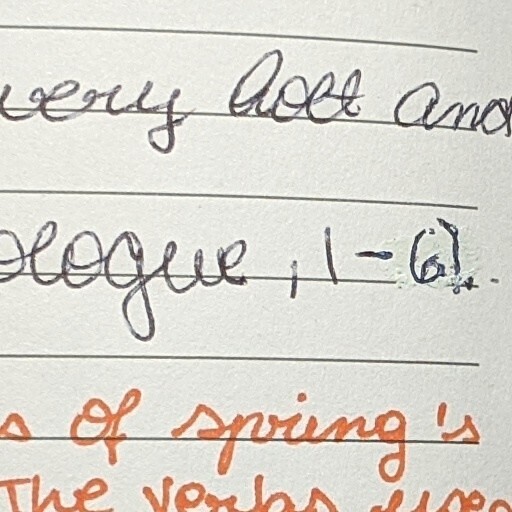 very holt and
ologue, 1-6).
s of spring's
The verbs used